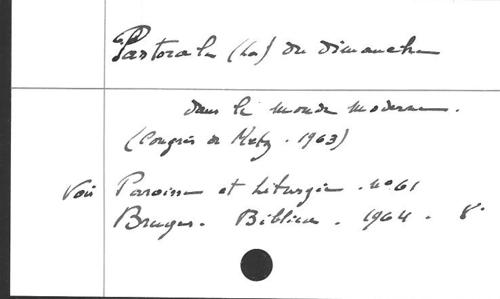 Pastorale (La) du dimanche
dans le monde moderne.
(Congrès de Metz. 1963)
Voir Paroisse et Liturgie. no 61
Bruges. Biblica. 1964. 8°